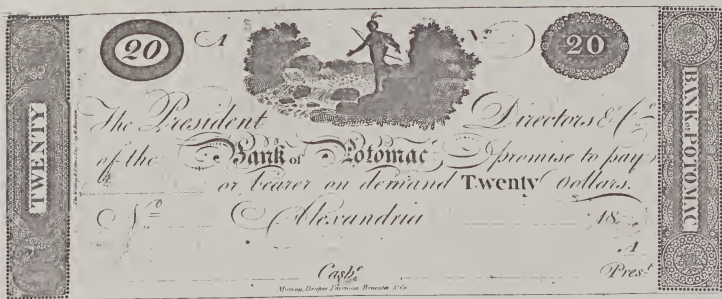 20 A No 20
The President Directors & Co
of the Bank of Potomac promise to pay
or bearer on demand Twenty Dollars.
No Alexandria 18
A
Cashr Prest
Murray, Draper Fairman Brewster & Co
TWENTY
BANK of POTOMAC